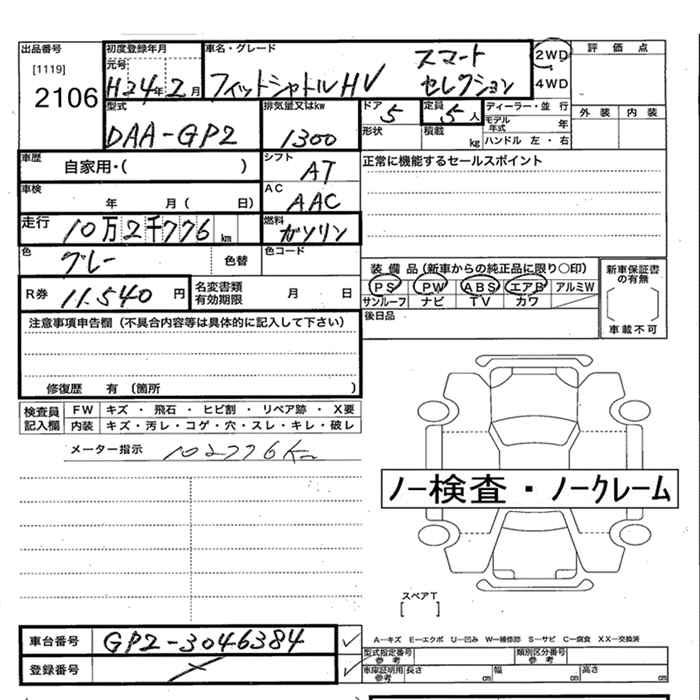 出品番号
[1119]
2106
初度登録年月
元号
H24年2月
車名・グレード
フィットシャトルHV
スマート
セレクション
2WD
4WD
評価点
外装 内装
型式
DAA-GP2
排気量又はkw
1300
ドア
5
定員
5人
形状
積載
kg
ディーラー・並行
モデル年式 年
ハンドル 左・右
車歴
自家用・( )
シフト
AT
車検
年 月( 日)
AC
AAC
走行
10万2千776km
燃料
ガソリン
色
グレー
色替
色コード
R券 11,540円
名変書類有効期限
月 日
正常に機能するセールスポイント
装備品(新車からの純正品に限り○印)
PS PW ABS エアB アルミW
サンルーフ ナビ TV カワ
後日品
新車保証書の有無
車載不可
注意事項申告欄(不具合内容等は具体的に記入して下さい)
修復歴 有(箇所 )
検査員記入欄
FW キズ・飛石・ヒビ割・リペア跡・X要
内装 キズ・汚レ・コゲ・穴・スレ・キレ・破レ
メーター指示 102776Km
ノー検査・ノークレーム
スペアT
[ ]
車台番号 GP2-3046384
登録番号
A−キズ E−エクボ U−凹み W−補修跡 S−サビ C−腐食 XX−交換済
型式指定番号 参考
類別区分番号 参考
車庫証明用 参考 長さ cm 幅 cm 高さ cm